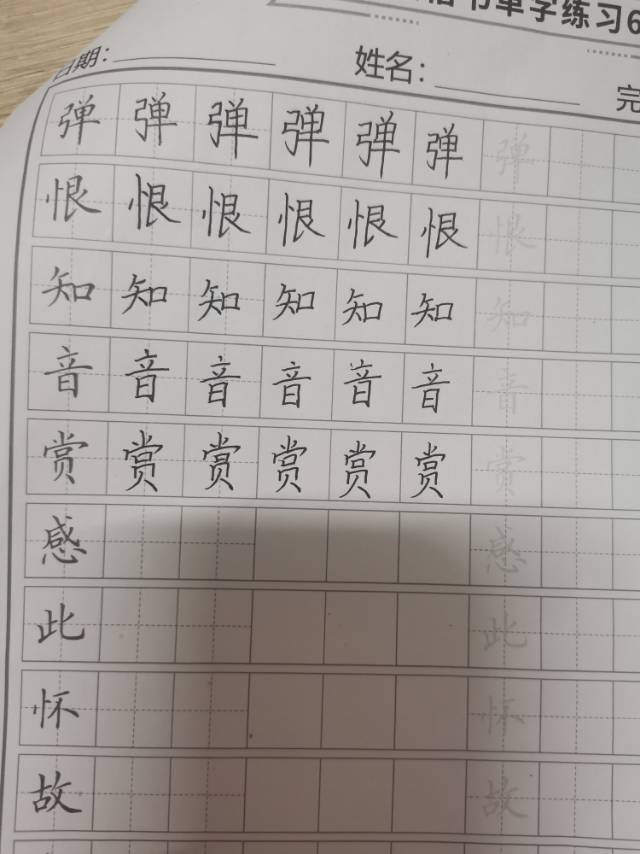 书单字练习6
日期：
姓名：
完
弹弹弹弹弹弹弹
恨恨恨恨恨恨恨
知知知知知知知
音音音音音音音
赏赏赏赏赏赏赏
感感
此此
怀怀
故故